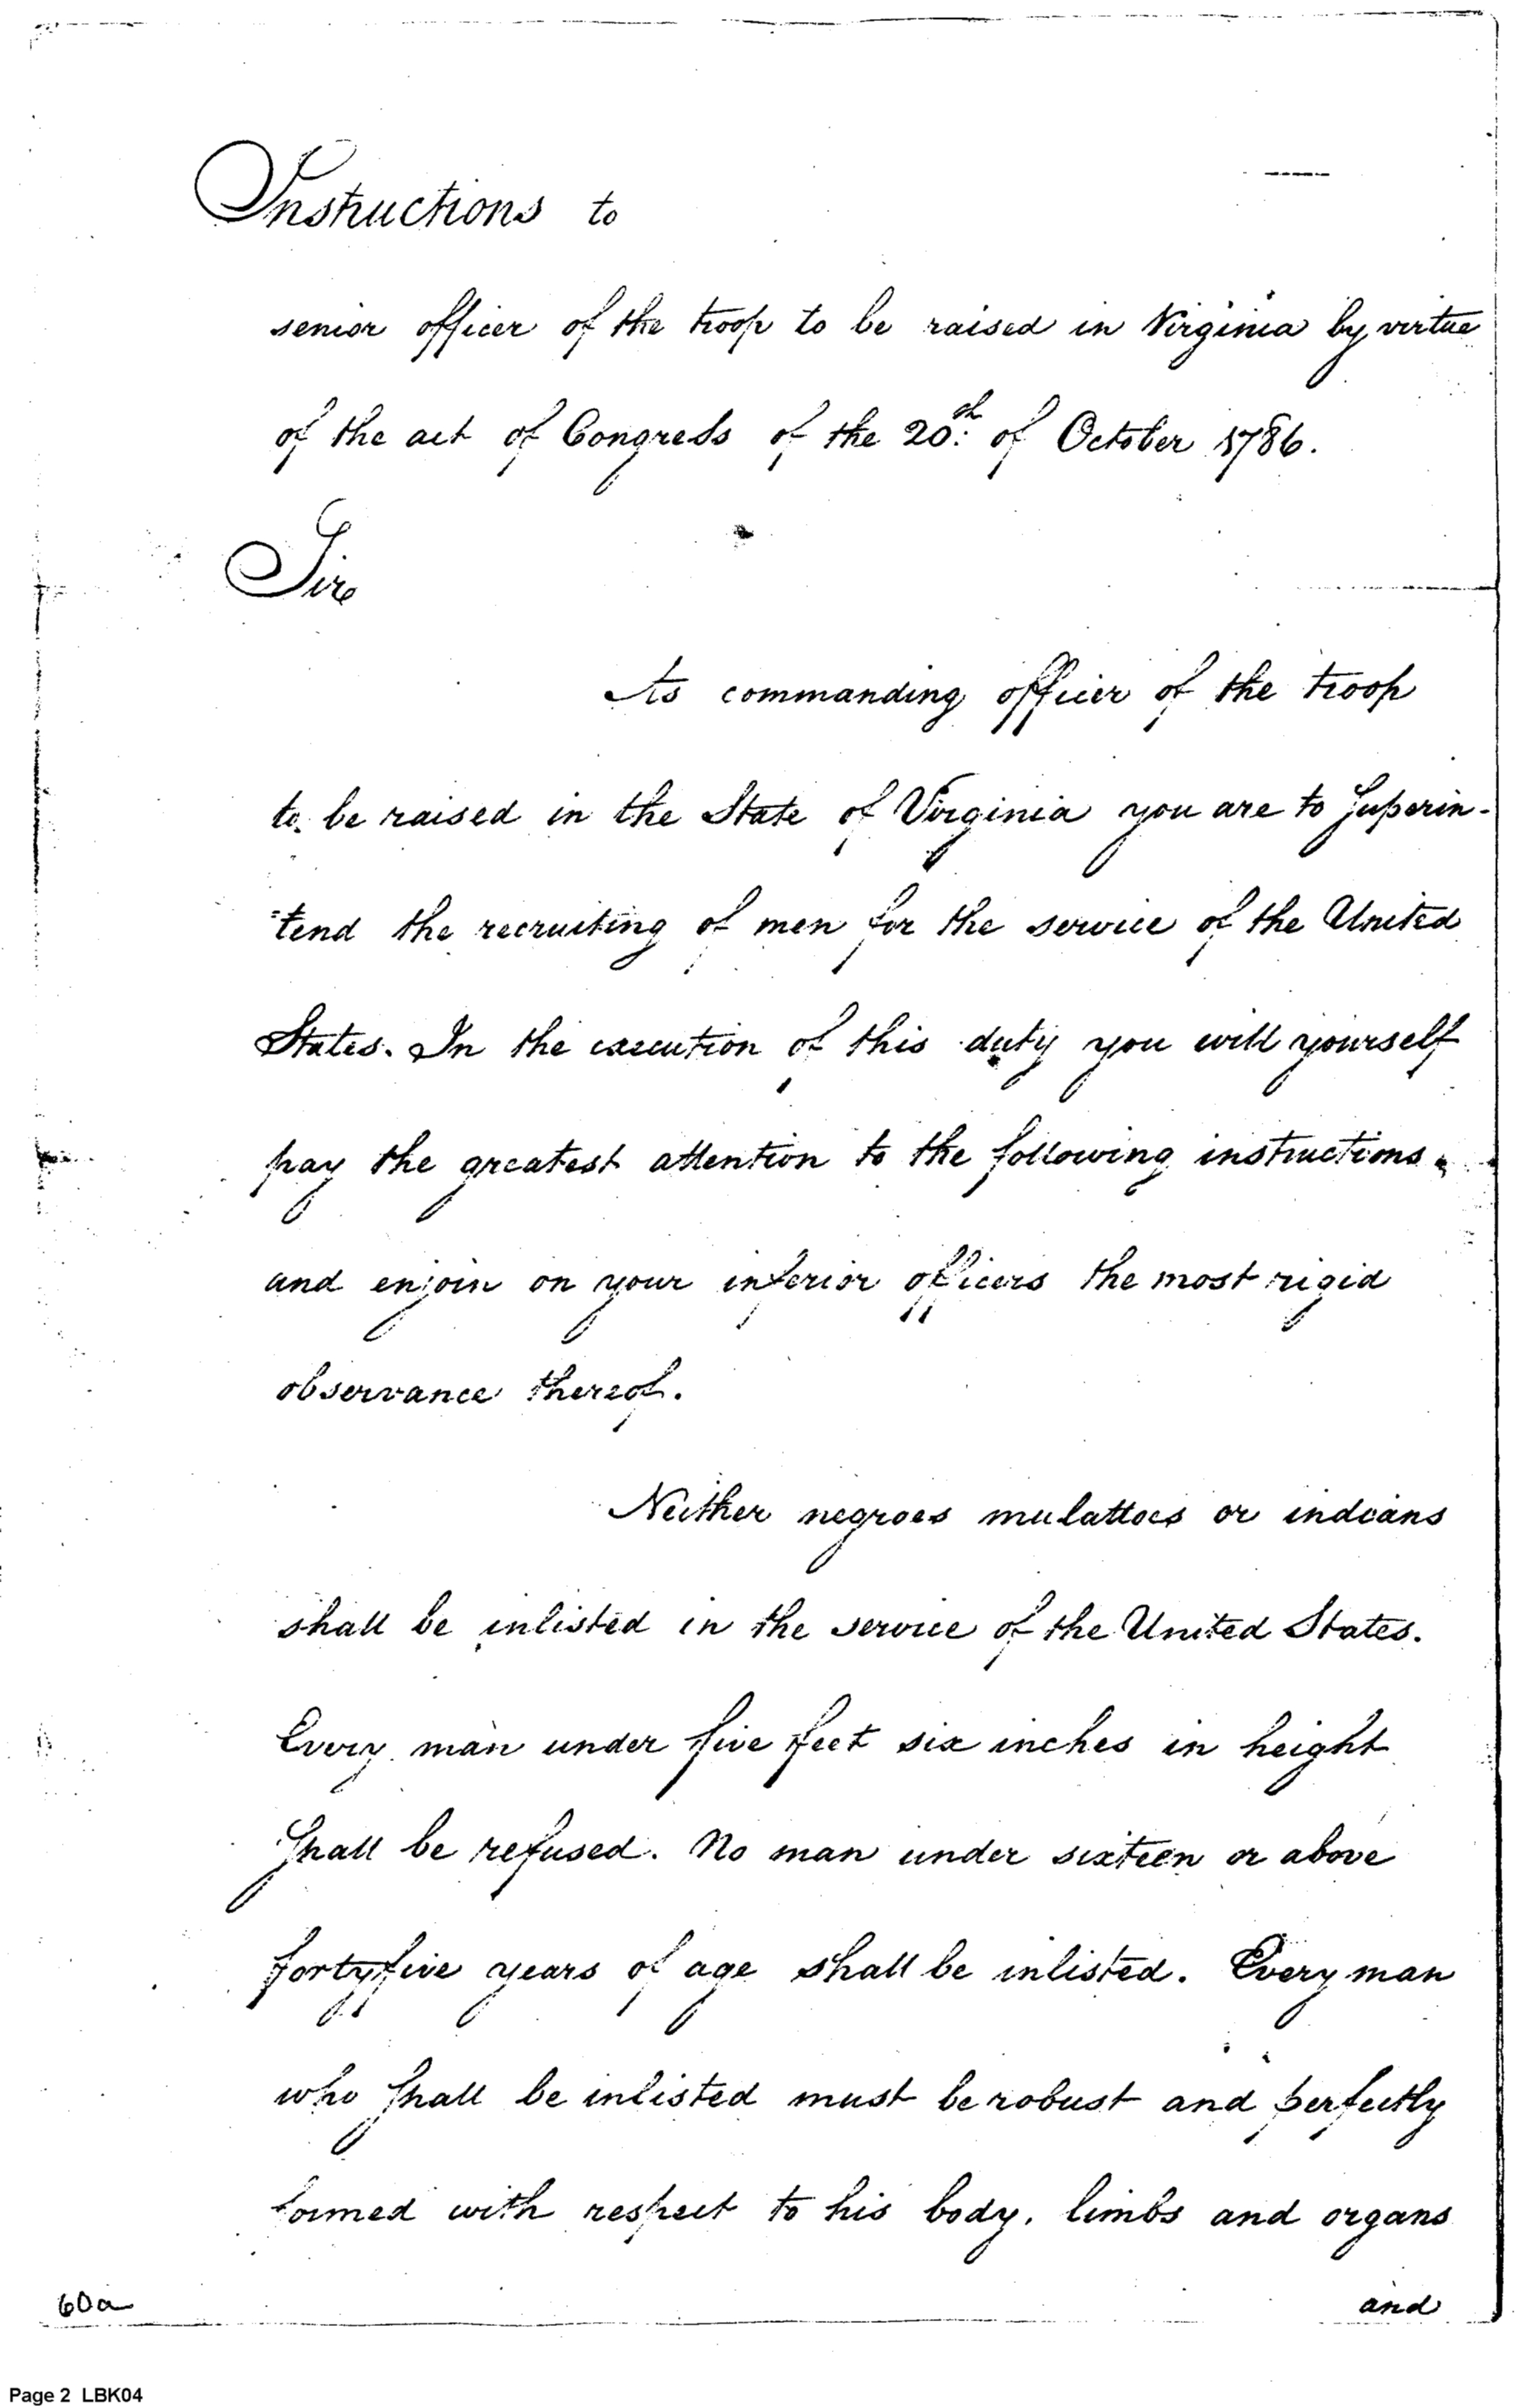 Instructions to
senior officer of the troop to be raised in Virginia by virtue
of the act of Congress of the 20.th of October 1786.
Sir
As commanding officer of the troop
to be raised in the State of Virginia you are to Superin-
-tend the recruiting of men for the service of the United
States. In the execution of this duty you will yourself
pay the greatest attention to the following instructions.
and enjoin on your inferior officers the most rigid
observance thereof.
Neither negroes mulattoes or indians
shall be inlisted in the service of the United States.
Every man under five feet six inches in height
Shall be refused. No man under sixteen or above
fortyfive years of age shall be inlisted. Every man
who shall be inlisted must be robust and perfectly
formed with respect to his body, limbs and organs
60a and
Page 2 LBK04